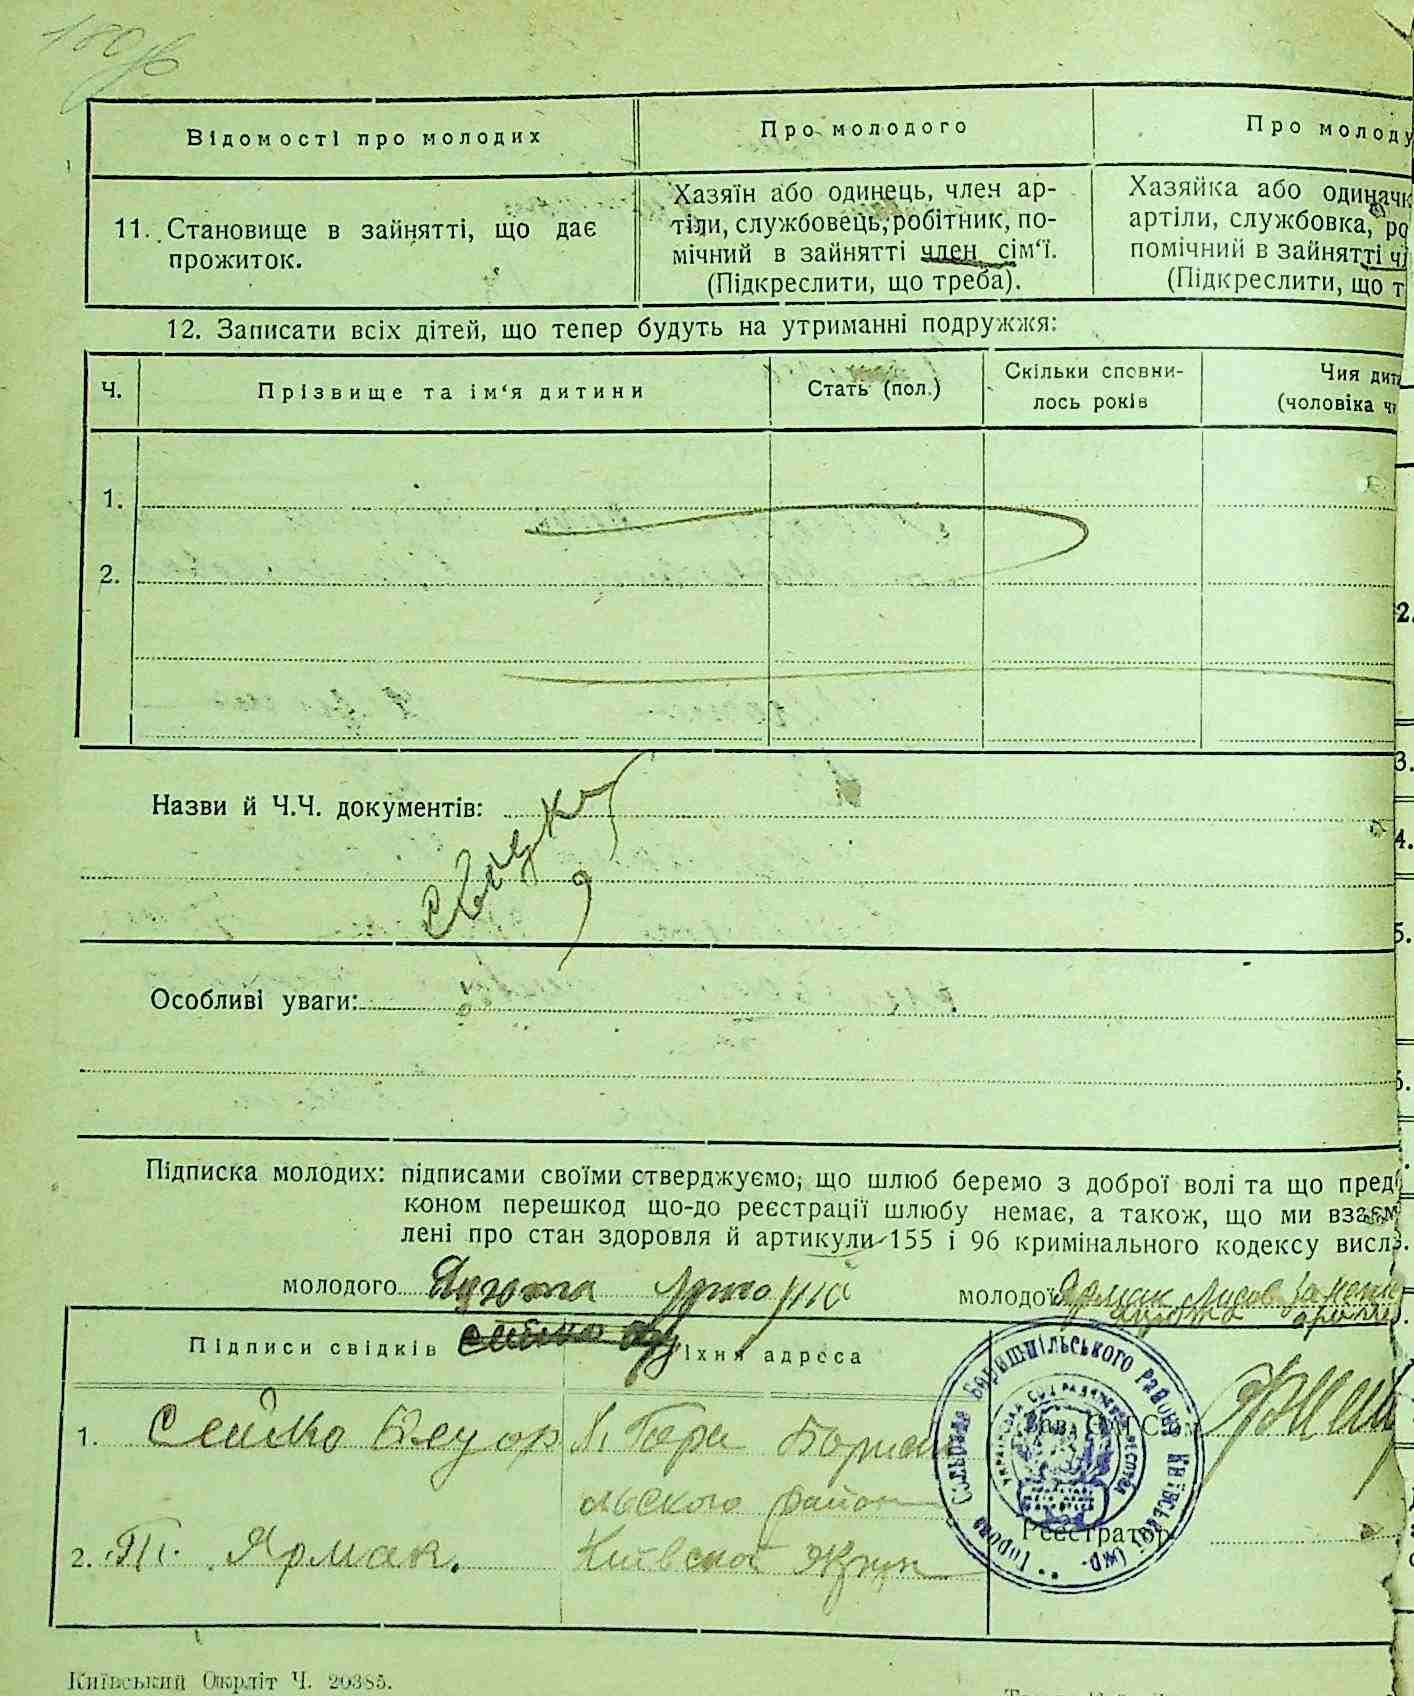 180 зв
Відомості про молодих
Про молодого
Про молоду
11. Становище в зайнятті, що дає
прожиток.
Хазяїн або одинець, член ар-
тіли, службовець, робітник, по-
мічний в зайнятті член сім‘ї.
(Підкреслити, що треба).
Хазяйка або одиначк
артіли, службовка, ро
помічний в зайнятті чл
(Підкреслити, що т
12. Записати всіх дітей, що тепер будуть на утриманні подружжя:
Ч.
Прізвище та ім‘я дитини
Стать (пол.)
Скільки сповни-
лось років
Чия дит
(чоловіка ч
1.
2.
Назви й Ч.Ч. документів:
Особливі уваги:
Підписка молодих: підписами своїми стверджуємо, що шлюб беремо з доброї волі та що пред
коном перешкод що-до реєстрації шлюбу немає, а також, що ми взаєм
лені про стан здоровля й артикули 155 і 96 кримінального кодексу висл
молодого
молодої Ярмак
Підписи свідків
Їхня адреса
1. Сешко Федор
х. Гора Борисп
ольского район
2. П. Ярмак.
Київской округ
Зав.
Реєстратор
Горська Сільрада Баришпільського Району Київської Окр.
Українська Соц. Радянська Республіка
Київський Окрліт Ч. 20385.